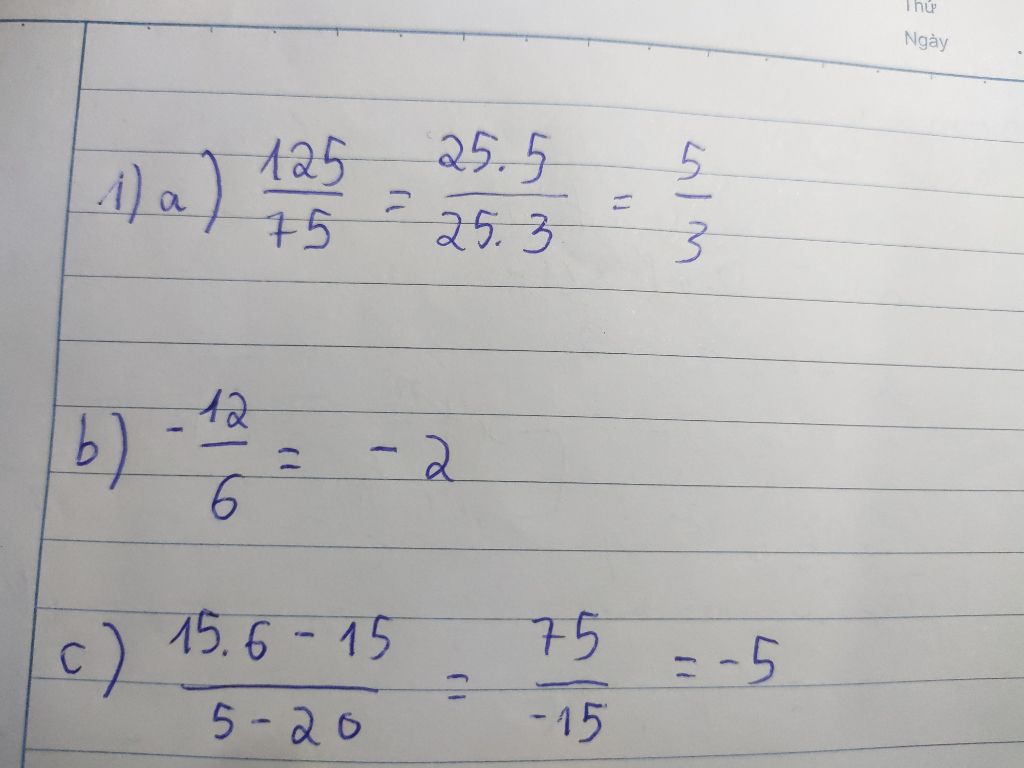 Thứ
Ngày
1) a) 125/75 = 25.5/25.3 = 5/3
b) -12/6 = -2
c) 15.6-15/5-20 = 75/-15 = -5